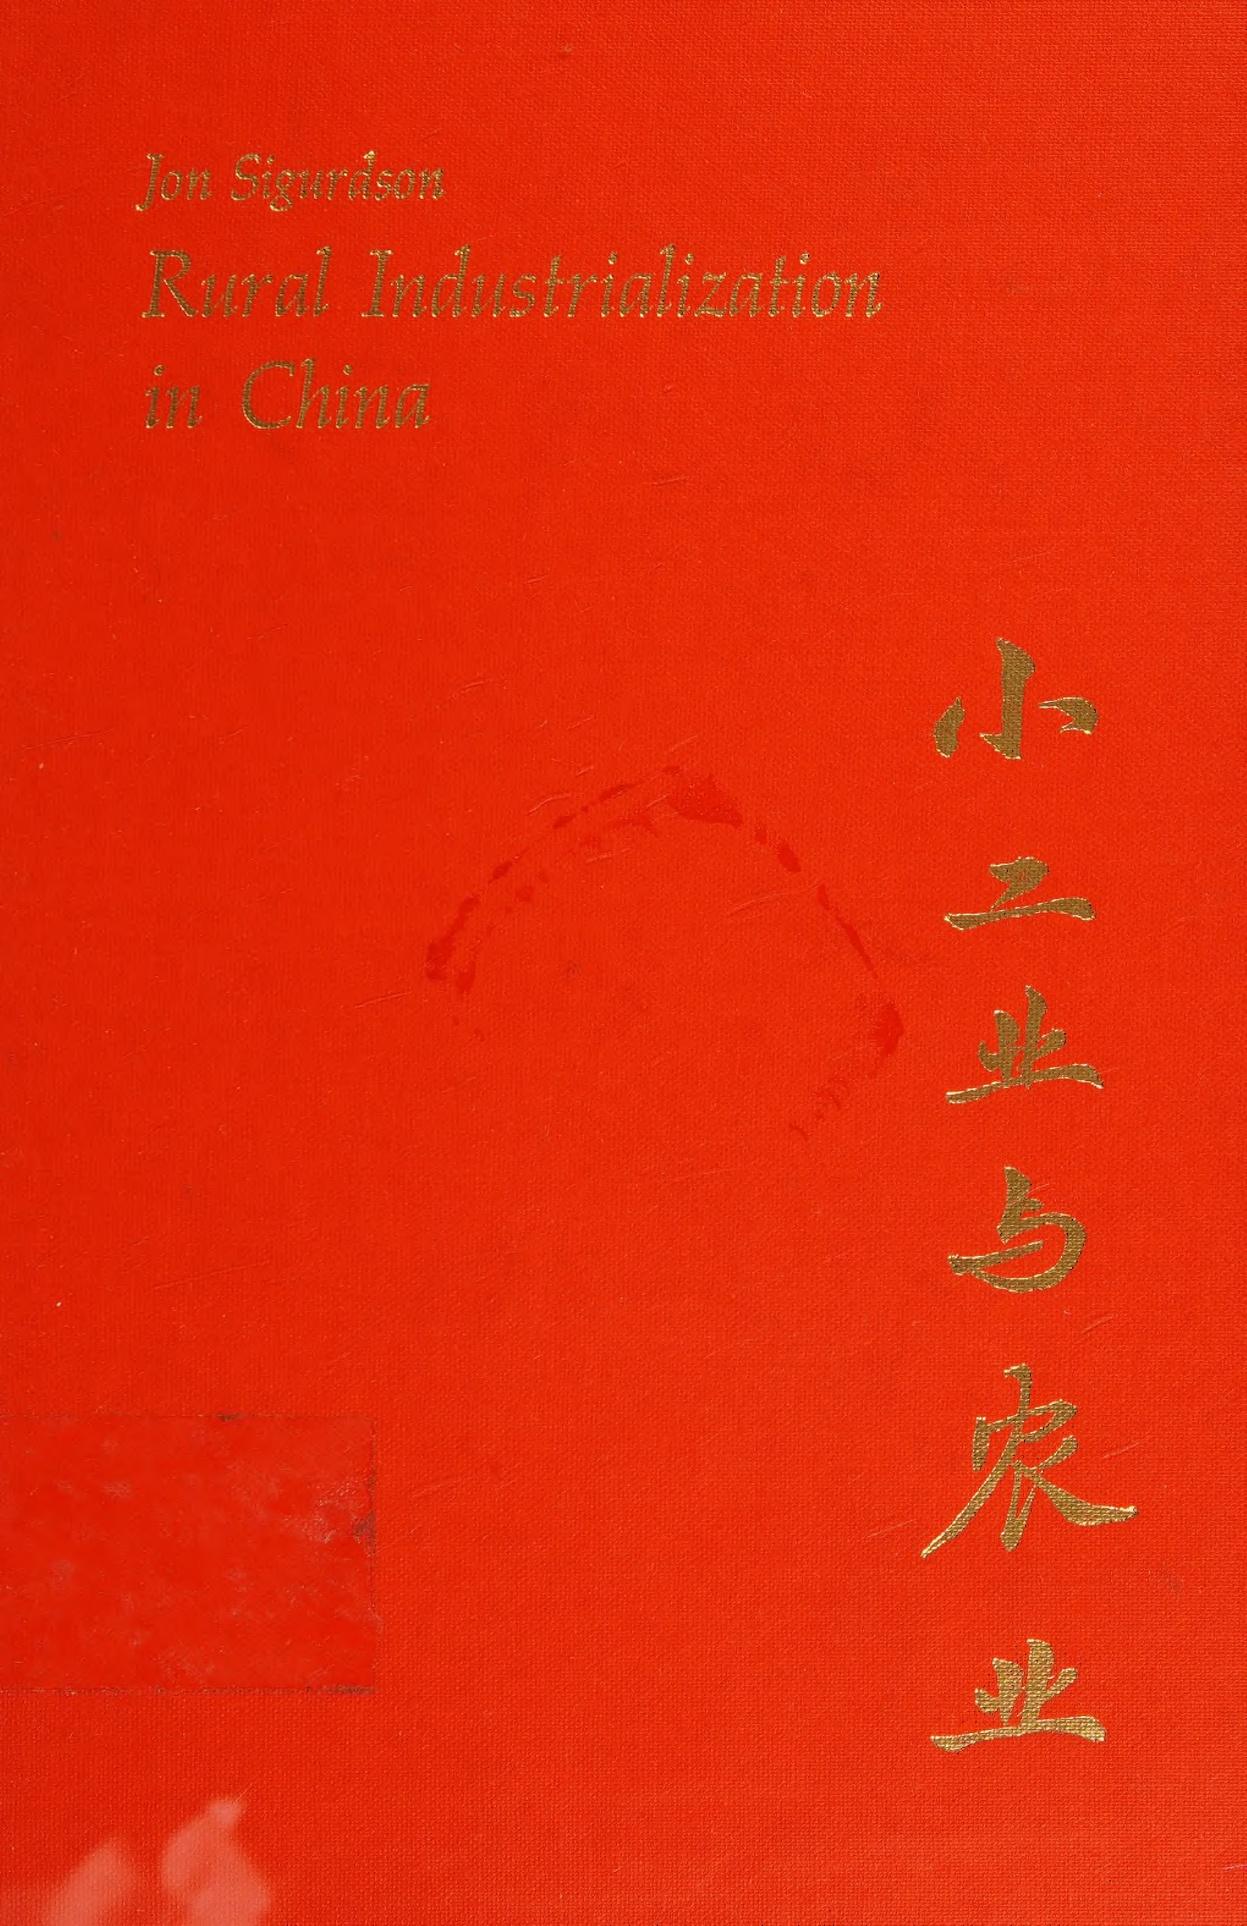 Jon Sigurdson
Rural Industrialization
in China
小工业与农业